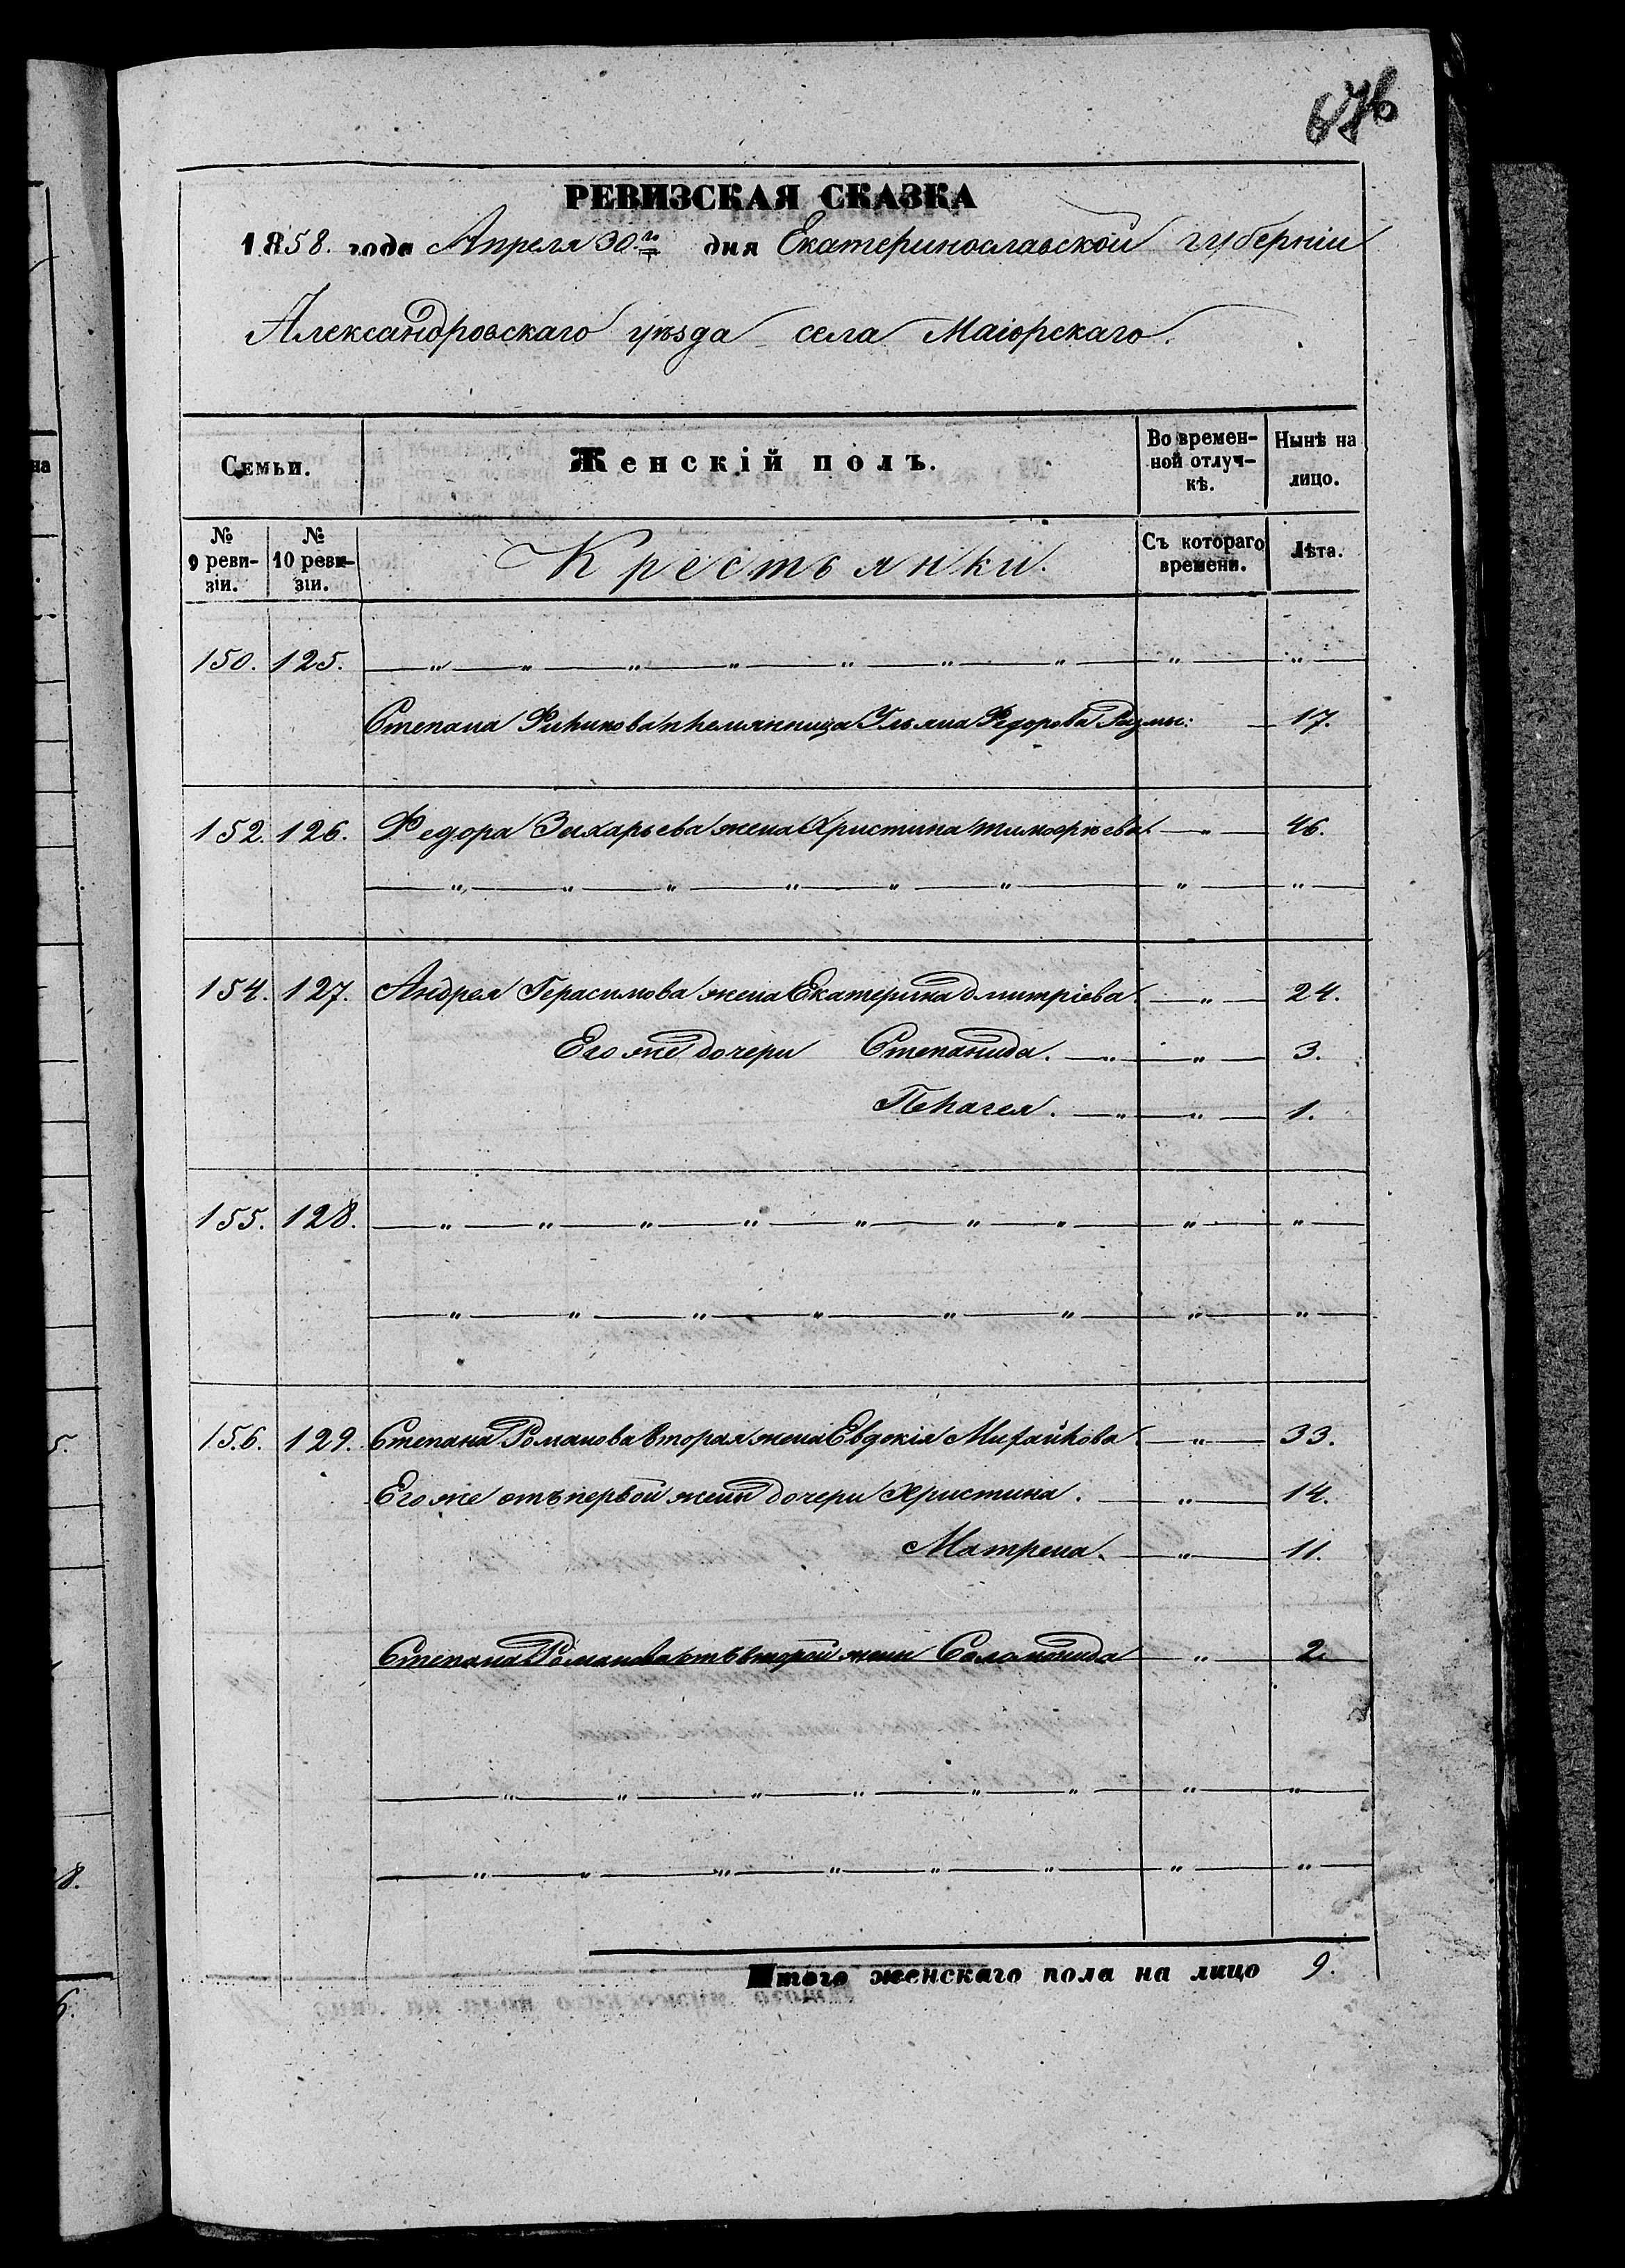 676
РЕВИЗСКАЯ СКАЗКА
1858. года Апреля 30.го дня Екатеринославской губернии
Александровскаго уѣзда села Маіорскаго.
Семьи. Женскій полъ. Во времен- Нынѣ на
ной отлуч- лицо.
кѣ.
№ № Крестьянки. Съ котораго Лѣта.
9 реви- 10 реви- времени.
зіи. зіи.
150. 125. — " — " — " — " — " — " — " — " — " —
Степана племянница Ульяна Федорова 17.
152. 126. Федора Захарьева жена Христина Тимофѣева. — " — 46.
— " — " — " — " — " — " — " — " —
154. 127. Андрея Герасимова жена Екатерина Дмитріева. — " — 24.
Его же дочери Степанида. — " — " — 3.
Пелагея. — " — " — 1.
155. 128. — " — " — " — " — " — " — " — " — " —
— " — " — " — " — " — " — " — " —
156. 129. Степана Романова вторая жена Евдокія Михайлова. — " — 33.
Его же отъ первой жены дочери Христина. — " — 14.
Матрена. — " — 11.
Степана Романова отъ второй жены Саломонида " — 2.
— " — " — " — " — " — " — " — " —
— " — " — " — " — " — " — " — " —
Итого женскаго пола на лицо 9.